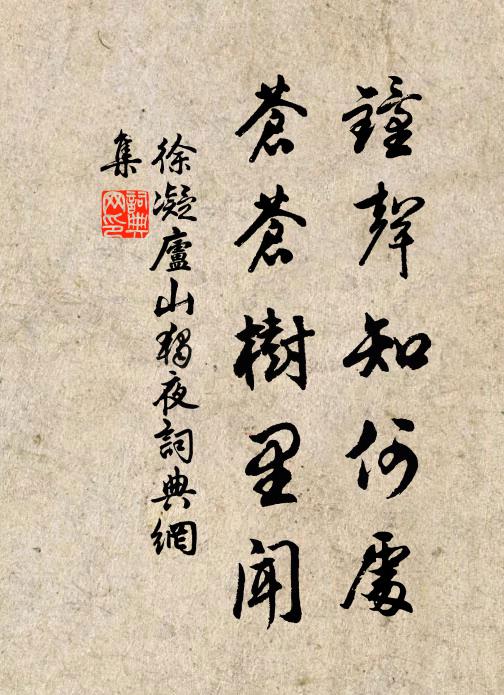 鐘聲知何處
蒼蒼樹里聞
徐凝廬山獨夜詞典網
集
詞典
网印